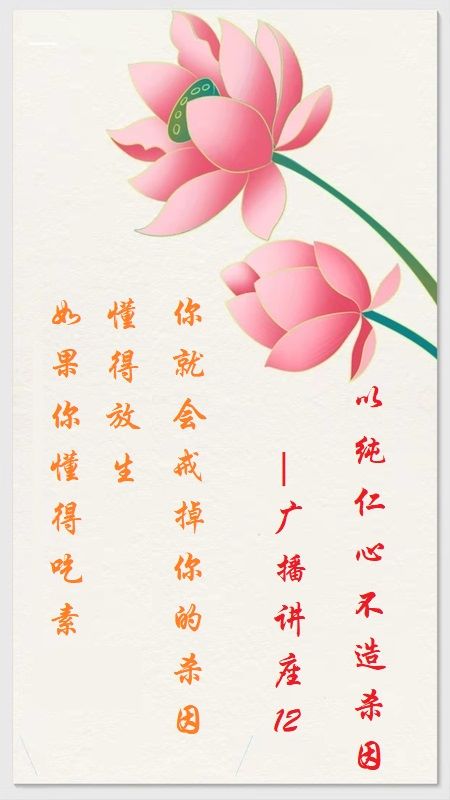 以纯仁心不造杀因
—广播讲座12
如果你懂得吃素
懂得放生
你就会戒掉你的杀因